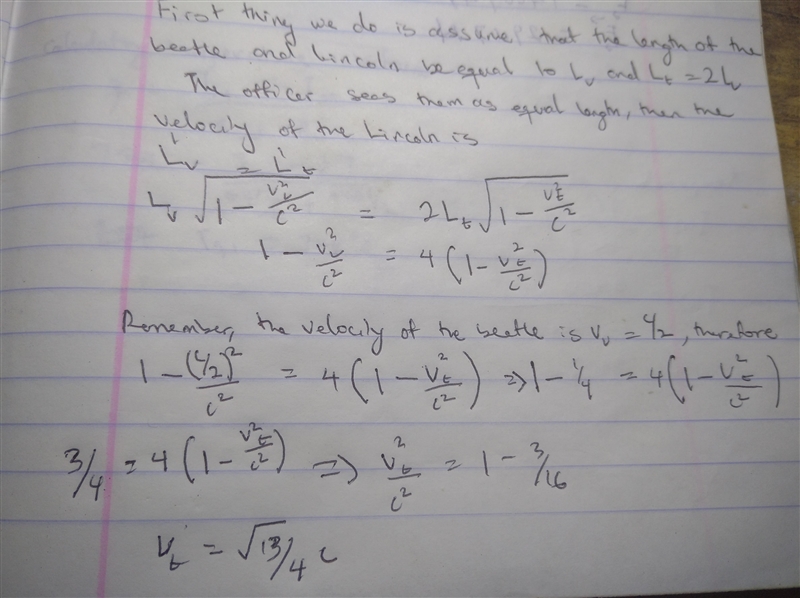 First thing we do is assume that the length of the
beetle and Lincoln be equal to Lᵥ and Lₜ = 2Lᵥ
The officer sees them as equal length, then the
velocity of the Lincoln is
L'ᵥ = L'ₜ
Lᵥ √(1 − vᵥ²/c²) = 2Lₜ √(1 − vₜ²/c²)
1 − vᵥ²/c² = 4(1 − vₜ²/c²)
Remember, the velocity of the beetle is vᵥ = c/2, therefore
1 − (c/2)²/c² = 4(1 − vₜ²/c²) ⇒ 1 − 1/4 = 4(1 − vₜ²/c²)
3/4 = 4(1 − vₜ²/c²) ⇒ vₜ²/c² = 1 − 3/16
vₜ = √13/4 c